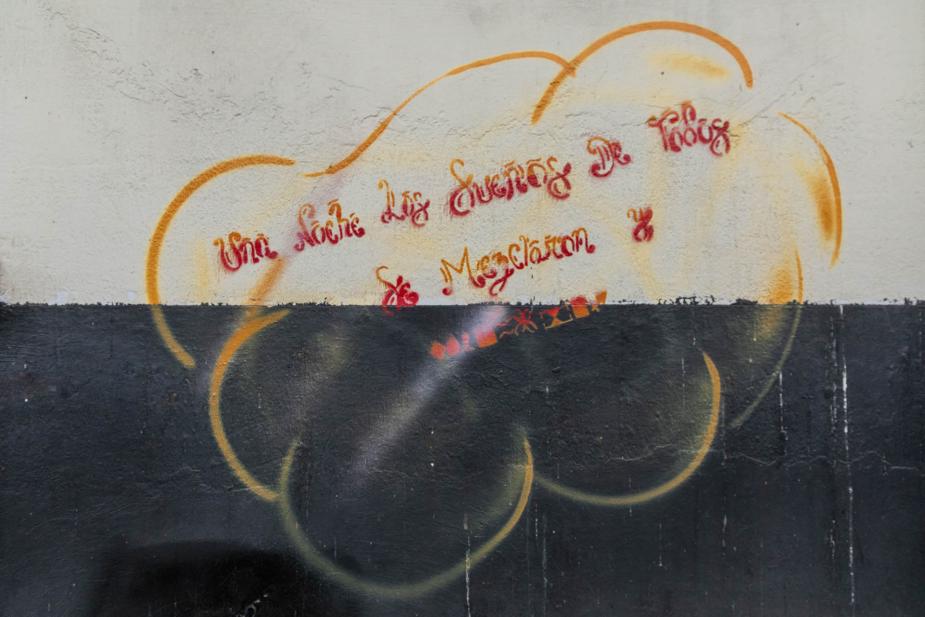 Una Noche Los Sueños De Todos
Se Mezclaron y